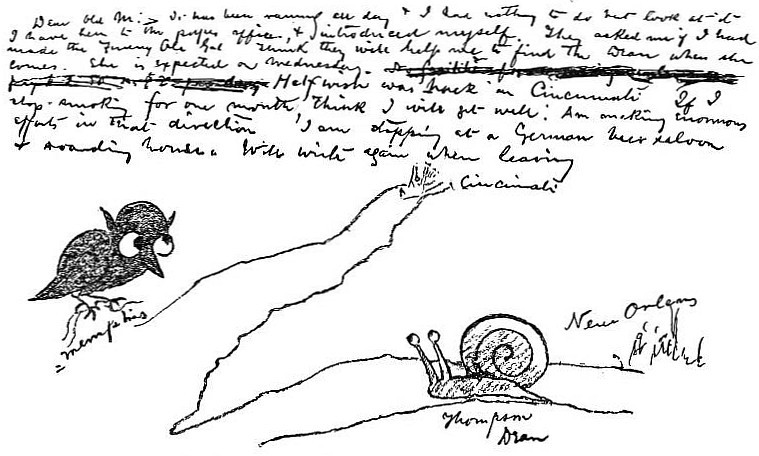 Dear Old Man: It has been raining all day & I had nothing to do but look at it
I have been to the papers offices, & introduced myself. They asked me if I had
made the Ole Think they will help me to find the Dean when she
comes. She is expected on Wednesday.
Half wish was back in Cincinnati If I
stop smoking for one month, think I will get well: Am making enormous
efforts in that direction I am stopping at a German beer saloon
& boarding house. Will write again when leaving
Cincinnati
Memphis
New Orleans
Thompson
Dean